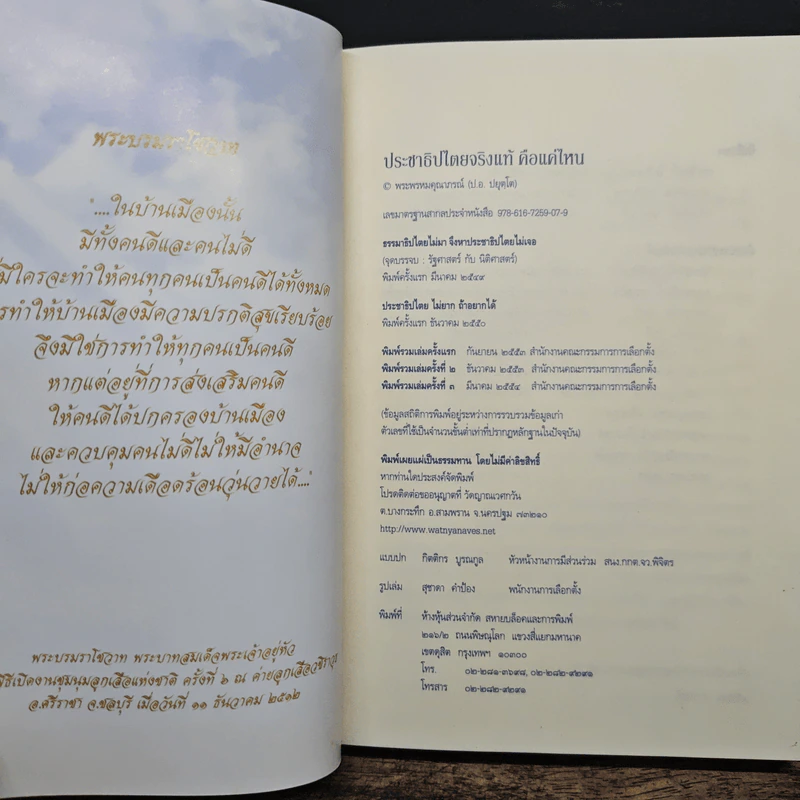 พระบรมราโชวาท
"....ในบ้านเมืองนั้น
มีทั้งคนดีและคนไม่ดี
มีใครจะทำให้คนทุกคนเป็นคนดีได้ทั้งหมด
รทำให้บ้านเมืองมีความปรกติสุขเรียบร้อย
จึงมิใช่การทำให้ทุกคนเป็นคนดี
หากแต่อยู่ที่การส่งเสริมคนดี
ให้คนดีได้ปกครองบ้านเมือง
และควบคุมคนไม่ดีไม่ให้มีอำนาจ
ไม่ให้ก่อความเดือดร้อนวุ่นวายได้...."
พระบรมราโชวาท พระบาทสมเด็จพระเจ้าอยู่หัว
พิธีเปิดงานชุมนุมลูกเสือแห่งชาติ ครั้งที่ ๖ ณ ค่ายลูกเสือวชิราวุธ
อ.ศรีราชา จ.ชลบุรี เมื่อวันที่ ๑๑ ธันวาคม ๒๕๑๒
ประชาธิปไตยจริงแท้ คือแค่ไหน
© พระพรหมคุณาภรณ์ (ป.อ. ปยุตฺโต)
เลขมาตรฐานสากลประจำหนังสือ 978-616-7259-07-9
ธรรมาธิปไตยไม่มา จึงหาประชาธิปไตยไม่เจอ
(จุดบรรจบ : รัฐศาสตร์ กับ นิติศาสตร์)
พิมพ์ครั้งแรก มีนาคม ๒๕๔๙
ประชาธิปไตย ไม่ยาก ถ้าอยากได้
พิมพ์ครั้งแรก ธันวาคม ๒๕๕๐
พิมพ์รวมเล่มครั้งแรก กันยายน ๒๕๕๓ สำนักงานคณะกรรมการการเลือกตั้ง
พิมพ์รวมเล่มครั้งที่ ๒ ธันวาคม ๒๕๕๓ สำนักงานคณะกรรมการการเลือกตั้ง
พิมพ์รวมเล่มครั้งที่ ๓ มีนาคม ๒๕๕๔ สำนักงานคณะกรรมการการเลือกตั้ง
(ข้อมูลสถิติการพิมพ์อยู่ระหว่างการรวบรวมข้อมูลเก่า
ตัวเลขที่ใช้เป็นจำนวนขั้นต่ำเท่าที่ปรากฏหลักฐานในปัจจุบัน)
พิมพ์เผยแผ่เป็นธรรมทาน โดยไม่มีค่าลิขสิทธิ์
หากท่านใดประสงค์จัดพิมพ์
โปรดติดต่อขออนุญาตที่ วัดญาณเวศกวัน
ต.บางกระทึก อ.สามพราน จ.นครปฐม ๗๓๒๑๐
http://www.watnyanaves.net
แบบปก กิตติกร บูรณกูล หัวหน้างานการมีส่วนร่วม สนง.กกต.จว.พิจิตร
รูปเล่ม สุชาดา คำป้อง พนักงานการเลือกตั้ง
พิมพ์ที่ ห้างหุ้นส่วนจำกัด สหายบล็อคและการพิมพ์
๒๑๖/๒ ถนนพิษณุโลก แขวงสี่แยกมหานาค
เขตดุสิต กรุงเทพฯ ๑๐๓๐๐
โทร. ๐๒-๒๘๑-๓๖๙๘, ๐๒-๒๘๒-๙๒๙๑
โทรสาร ๐๒-๒๘๒-๙๒๙๑